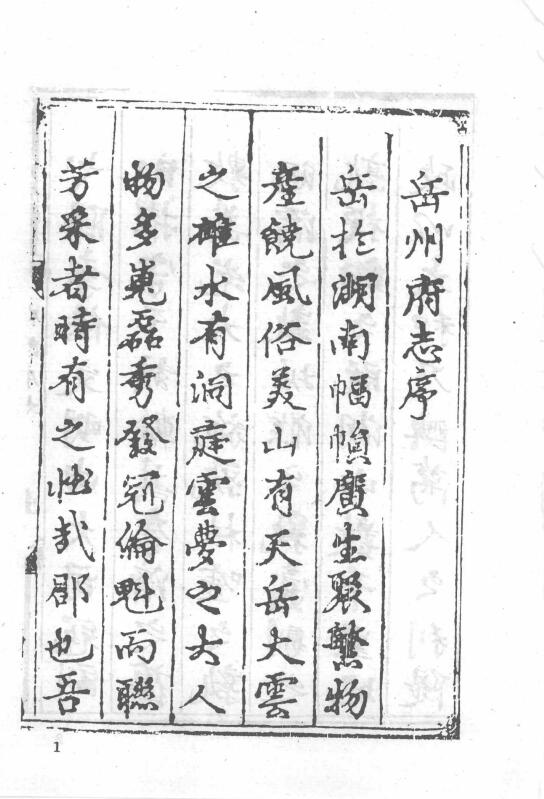 岳州府志序
岳於湖南幅幀廣生聚繁物
產饒風俗美山有天岳大雲
之雄水有洞庭雲夢之大人
物多嵬磊秀發冠倫魁而聯
芳采者時有之壯哉郡也吾
1